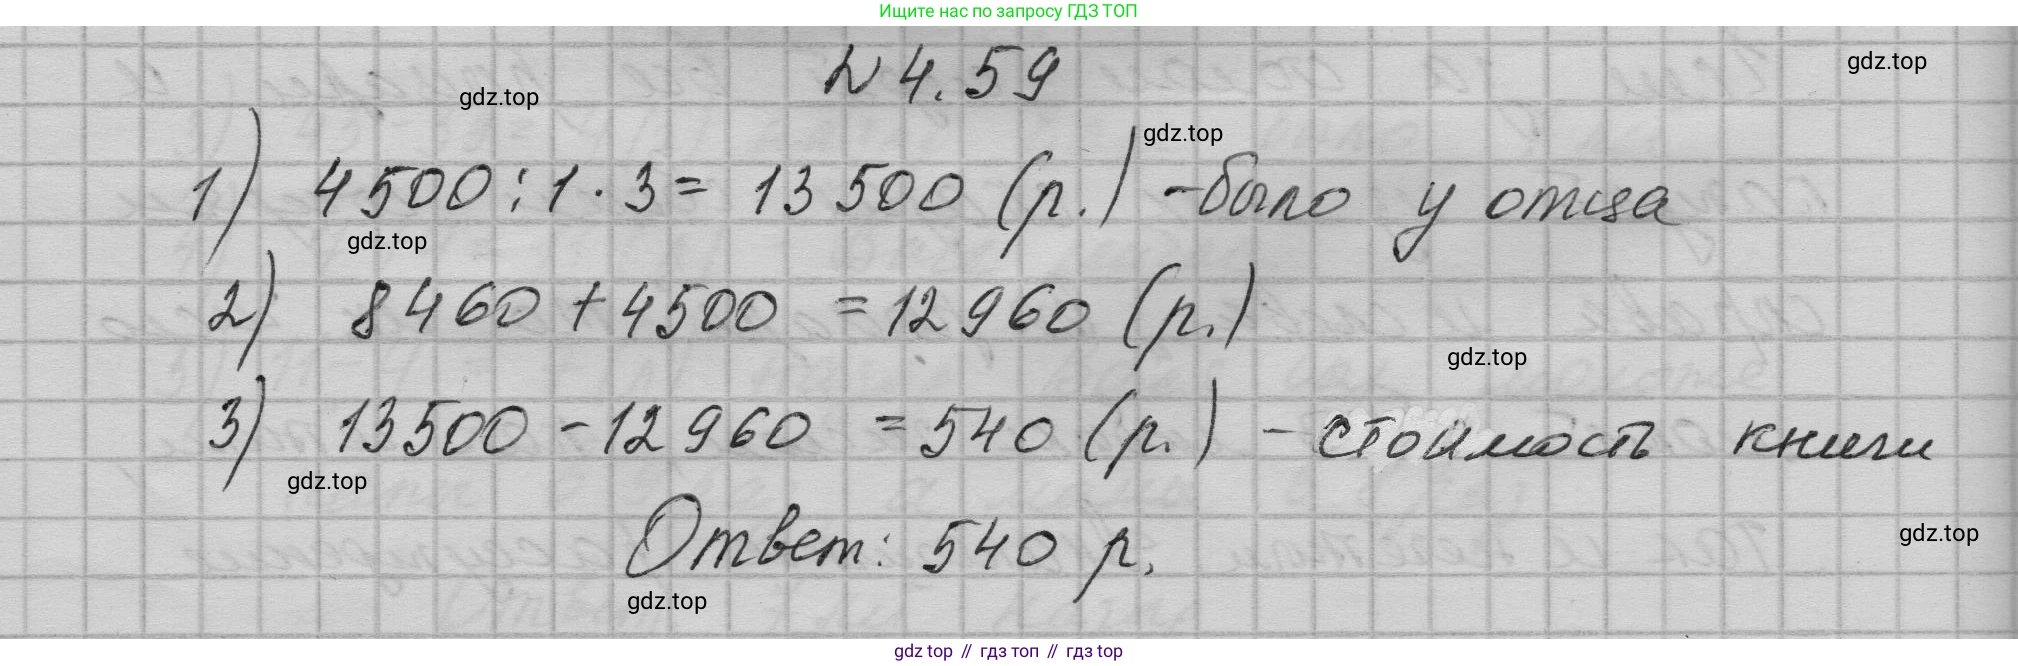 Ищите нас по запросу ГДЗ ТОП
№ 4.59
gdz.top
gdz.top
gdz.top
1) 4500 : 1 · 3 = 13 500 (р.) - было у отца
gdz.top
2) 8460 + 4500 = 12 960 (р.)
gdz.top
3) 13500 - 12 960 = 540 (р.) - стоимость книги
gdz.top
Ответ: 540 р.
gdz.top
gdz.top
gdz top // гдз топ // гдз top